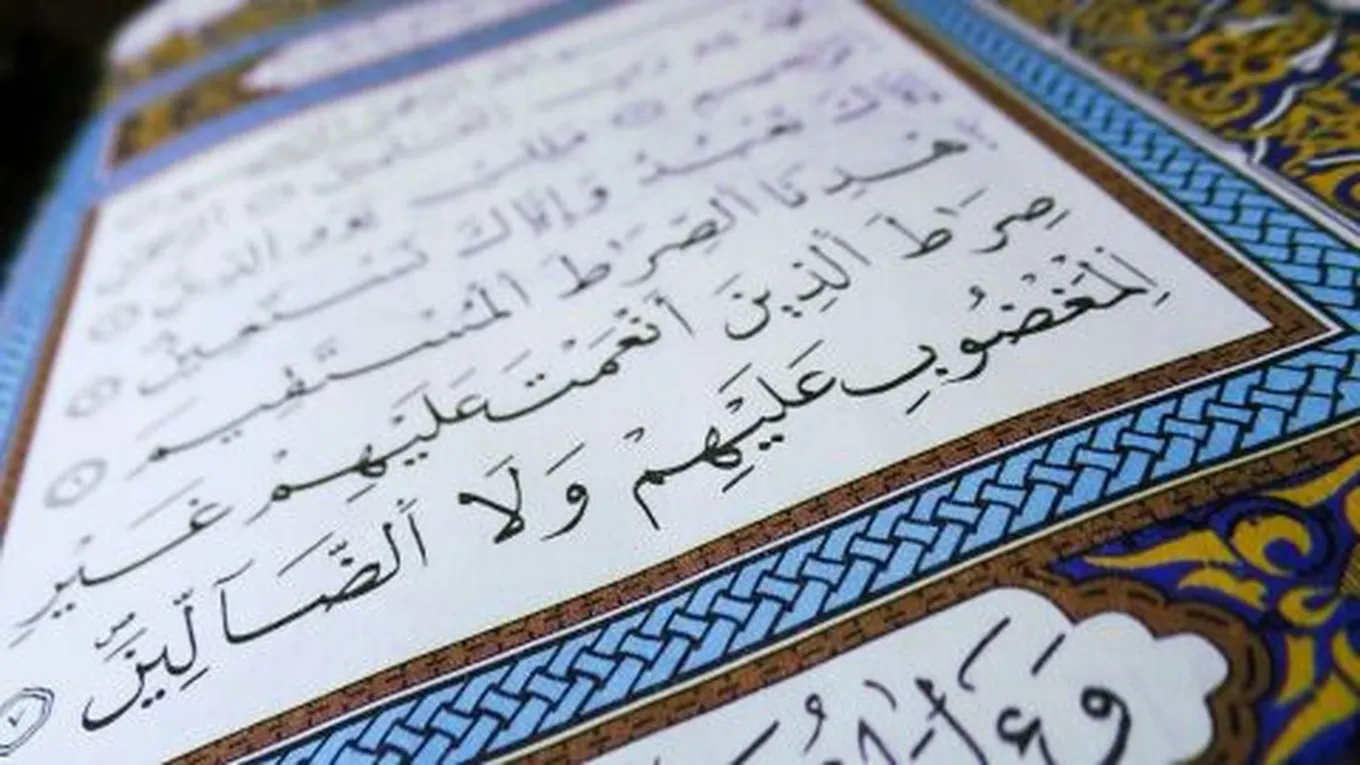 مَٰلِكِ يَوْمِ ٱلدِّينِ
إِيَّاكَ نَعْبُدُ وَإِيَّاكَ نَسْتَعِينُ
ٱهْدِنَا ٱلصِّرَٰطَ ٱلْمُسْتَقِيمَ ٦
صِرَٰطَ ٱلَّذِينَ أَنْعَمْتَ عَلَيْهِمْ غَيْرِ
ٱلْمَغْضُوبِ عَلَيْهِمْ وَلَا ٱلضَّآلِّينَ ٧